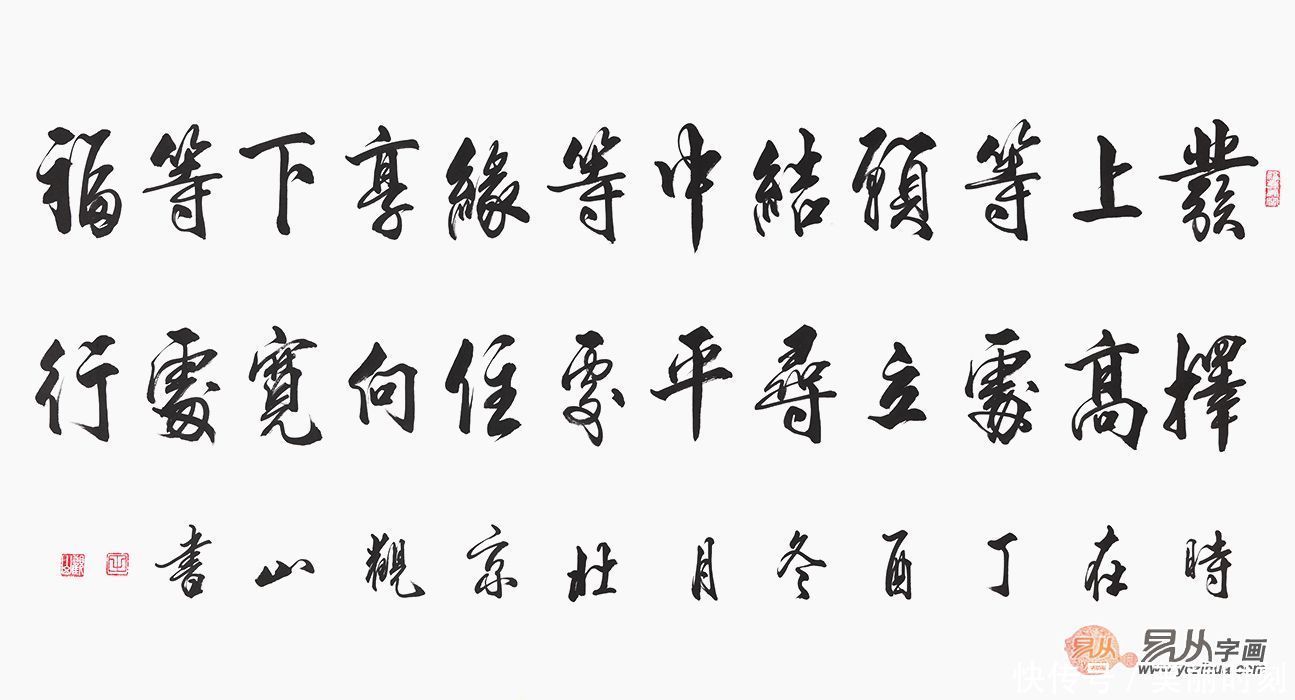 發上等願結中等緣享下等福
擇高處立尋平處住向寬處行
時在丁酉冬月於京觀山書
易从字画
www.yczihua.com
快传号 / 美丽时刻